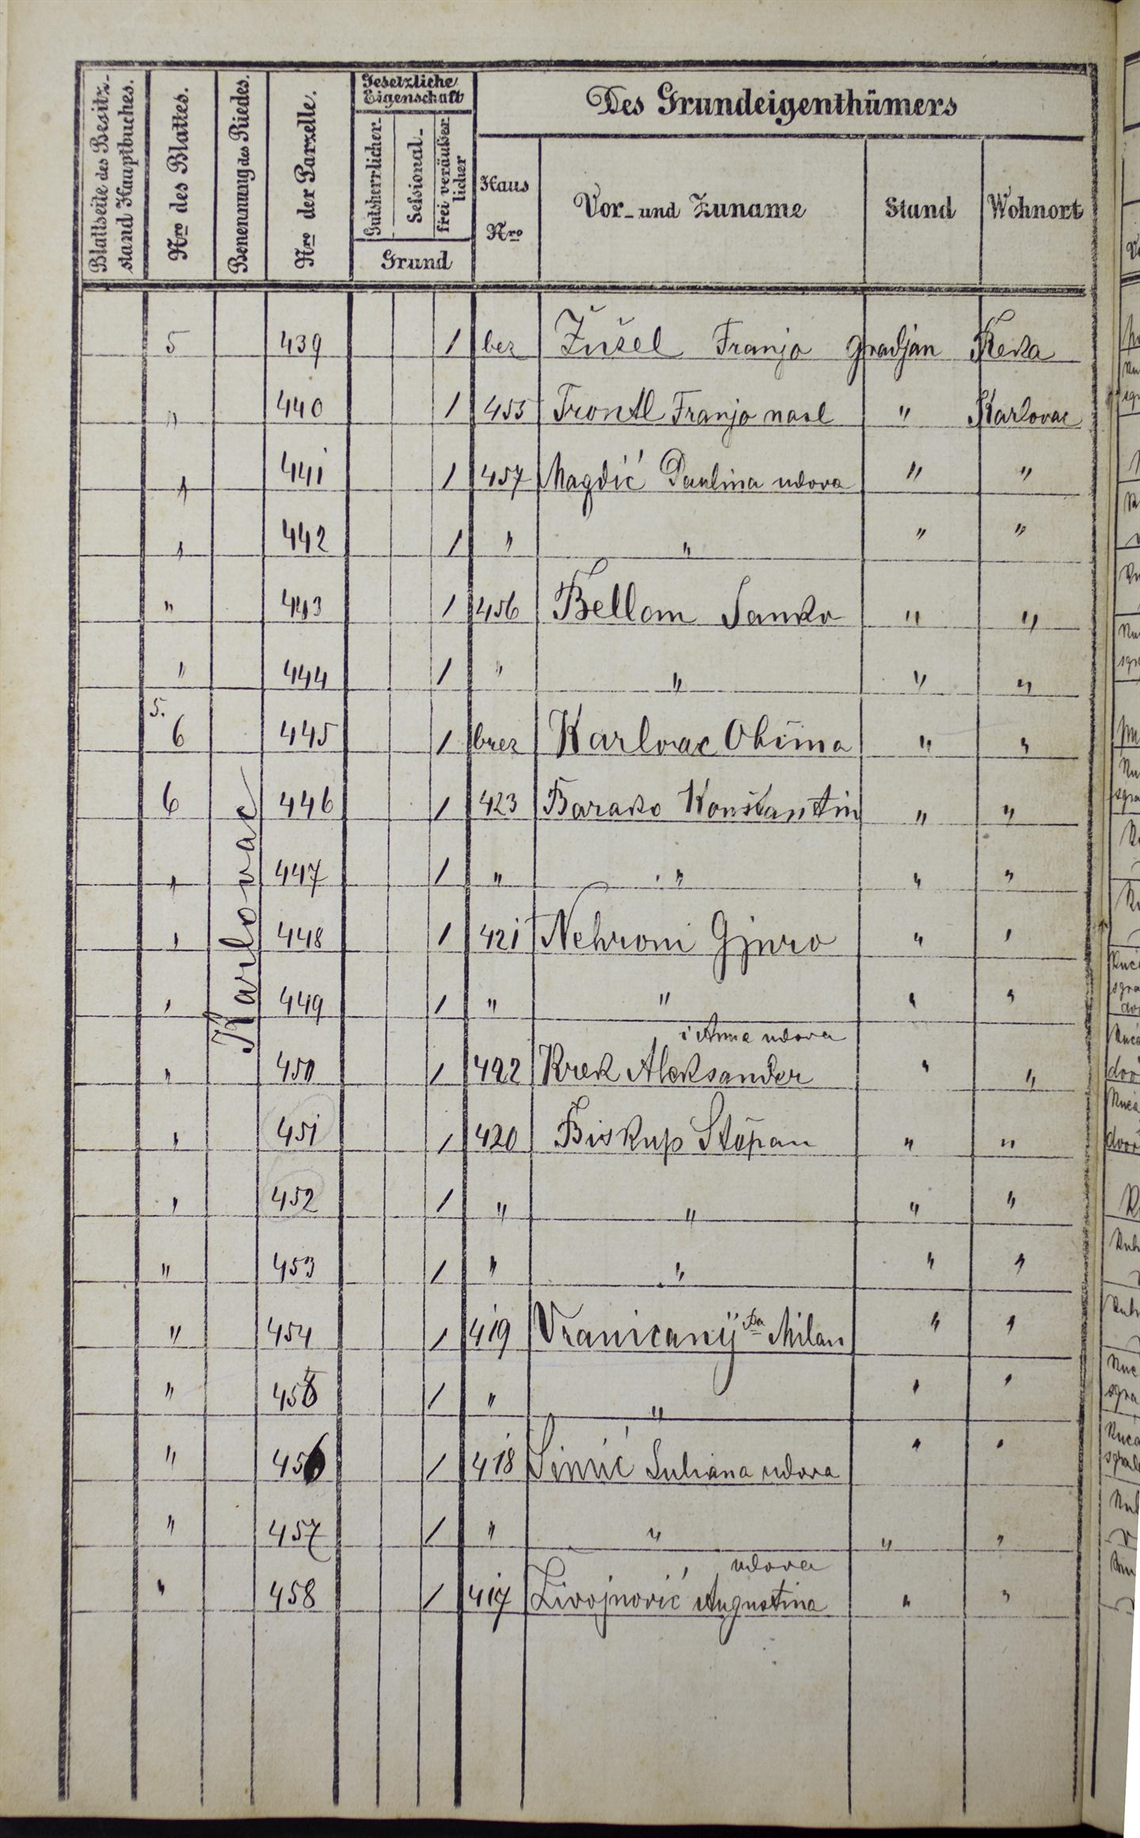 Blattseite des Besitz-
stand Hauptbuches.
Nro des Blattes.
Benennung des Riedes.
Nro der Parzelle.
Gesetzliche
Eigenschaft
Gutsherrlicher
Sessional-
frei veräußer
licher
Grund
Des Grundeigenthümers
Haus
Nro
Vor- und Zuname
Stand
Wohnort
Karlovac
5 439 1 bez Žužel Franjo gradjan Reka
" 440 1 455 Trontl Franjo nasl " Karlovac
" 441 1 457 Magdić Paulina udova " "
" 442 1 " " " "
" 443 1 456 Bellom Janko " "
" 444 1 " " " "
5.
6 445 1 brez Karlovac Obćina " "
6 446 1 423 Barako Konstantin " "
" 447 1 " " " "
" 448 1 421 Nehroni Gjuro " "
" 449 1 " " " "
i Anna udova
" 450 1 422 Krek Aleksander " "
" 451 1 420 Biskup Stěpan " "
" 452 1 " " " "
" 453 1 " " " "
" 454 1 419 Vranicany Milan " "
" 455 1 " " " "
" 456 1 418 Simić Juliana udova " "
" 457 1 " " " "
udova
" 458 1 417 Živojnović Augustina " "